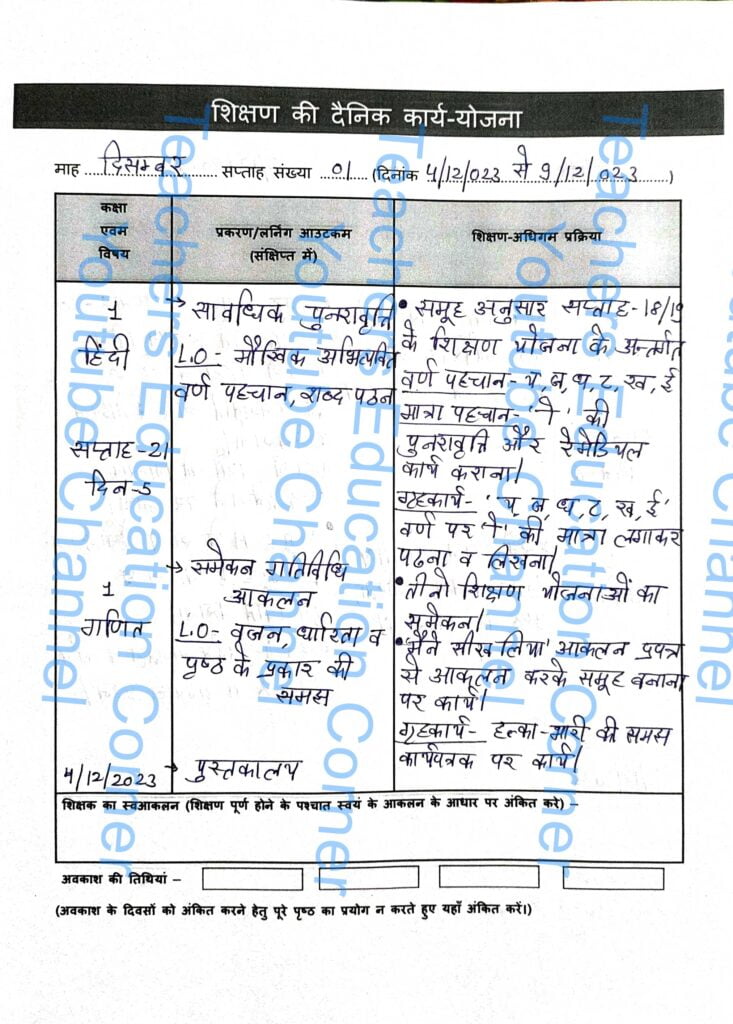 शिक्षण की दैनिक कार्य-योजना
माह ....दिसम्बर.... सप्ताह संख्या ..01.... (दिनांक 4/12/023 से 9/12/023.......)
कक्षा
एवम
विषय
प्रकरण/लर्निंग आउटकम
(संक्षिप्त में)
शिक्षण-अधिगम प्रक्रिया
1
हिंदी
सप्ताह-21
दिन-5
→ सावधिक पुनरावृत्ति
L.O- मौखिक अभिव्यक्ति
वर्ण पहचान, शब्द पठन
• समूह अनुसार सप्ताह-18/19
के शिक्षण योजना के अन्तर्गत
वर्ण पहचान- य, ज, थ, ट, ख, ई
मात्रा पहचान- 'ो' की
पुनरावृत्ति और रेमेडियल
कार्य कराना।
गृहकार्य- 'य, ज, थ, ट, ख, ई'
वर्ण पर 'ो' की मात्रा लगाकर
पढना व लिखना।
1
गणित
→ समेकन गतिविधि
आकलन
L.O- वजन, धारिता व
पृष्ठ के प्रकार की
समझ
• तीनो शिक्षण योजनाओं का
समेकन।
• 'मैने सीख लिया' आकलन प्रपत्र
से आकलन करके समूह बनाना
पर कार्य।
गृहकार्य- हल्का-भारी की समझ
कार्यपत्रक पर कार्य।
4/12/2023
→ पुस्तकालय
शिक्षक का स्वआकलन (शिक्षण पूर्ण होने के पश्चात स्वयं के आकलन के आधार पर अंकित करे) –
अवकाश की तिथियां –
(अवकाश के दिवसों को अंकित करने हेतु पूरे पृष्ठ का प्रयोग न करते हुए यहाँ अंकित करें।)
Teachers Education Corner
Youtube Channel
Teachers Education Corner
Youtube Channel
Teachers Education Corner
Youtube Channel